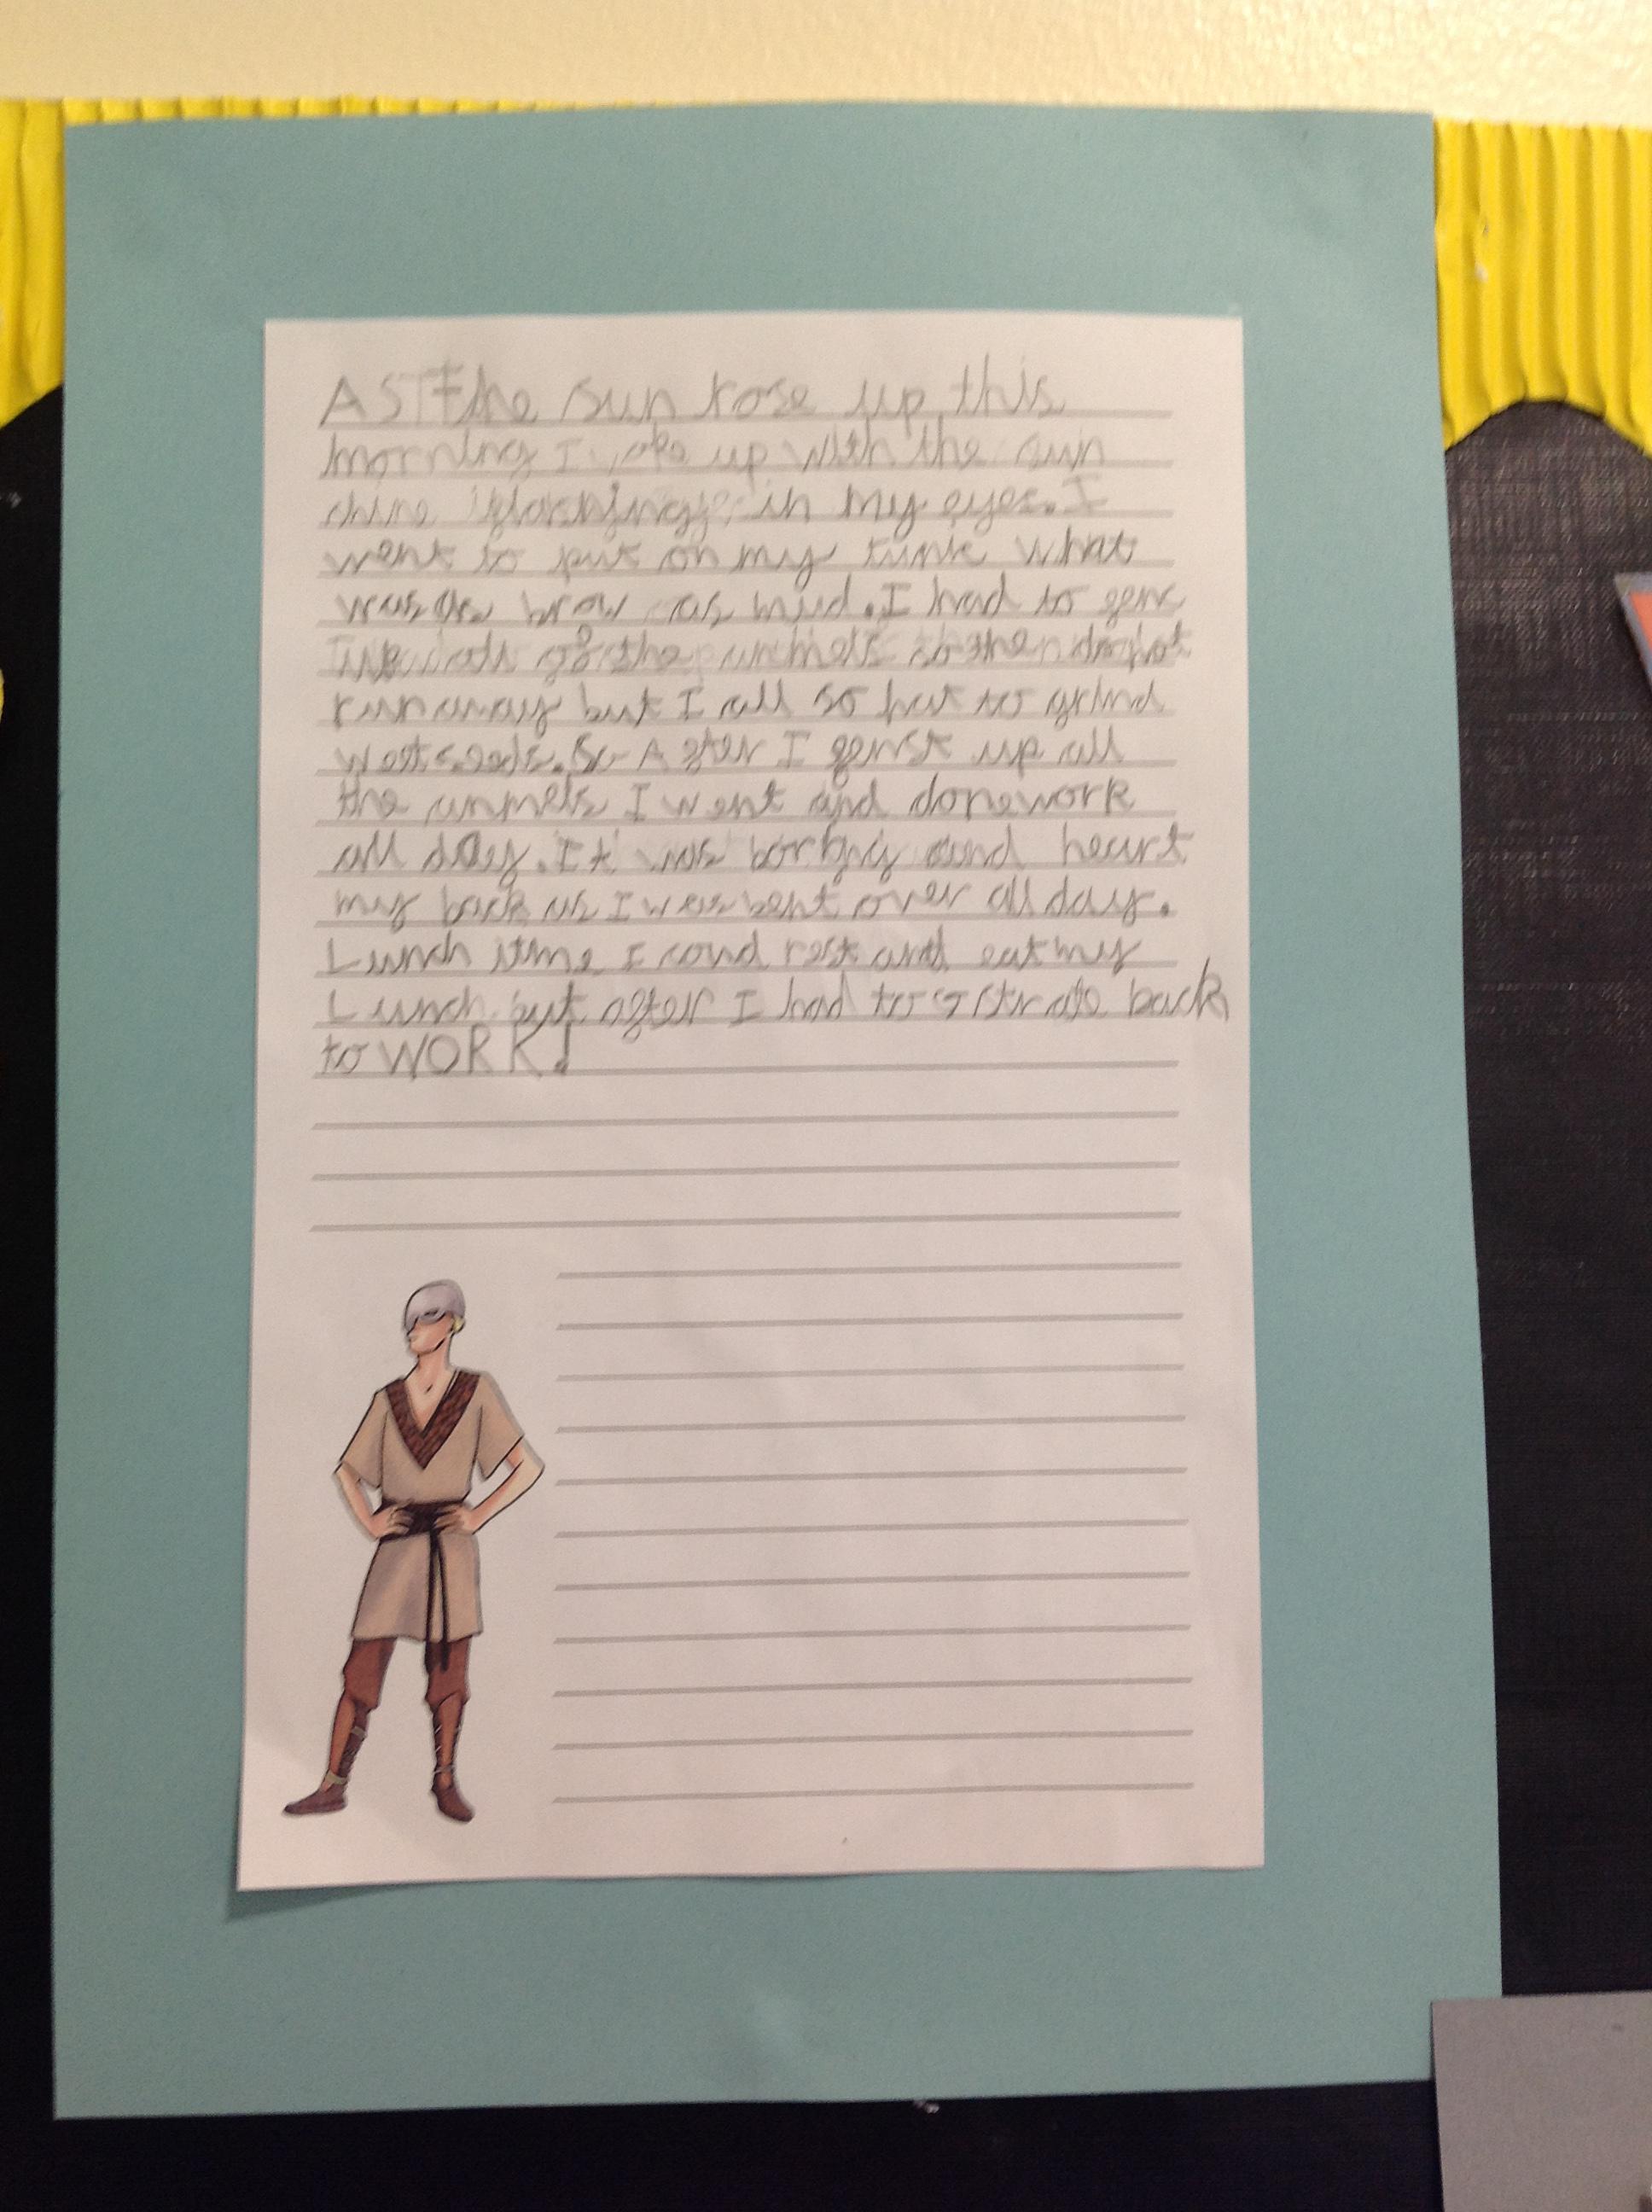 AS the sun rose up this
morning I woke up with the sun
shine in my eyes. I
went to put on my tunic what
was as brow as mud. I had to genc
up all of the anmels so the do not
run away but I all so hat to grind
weet seeds. After I genst up all
the anmels I went and done work
all day. It was boring and heart
my back as I was bent over all day.
Lunch itme I coud rest and eat my
Lunch but after I had to strate back
to WORK!